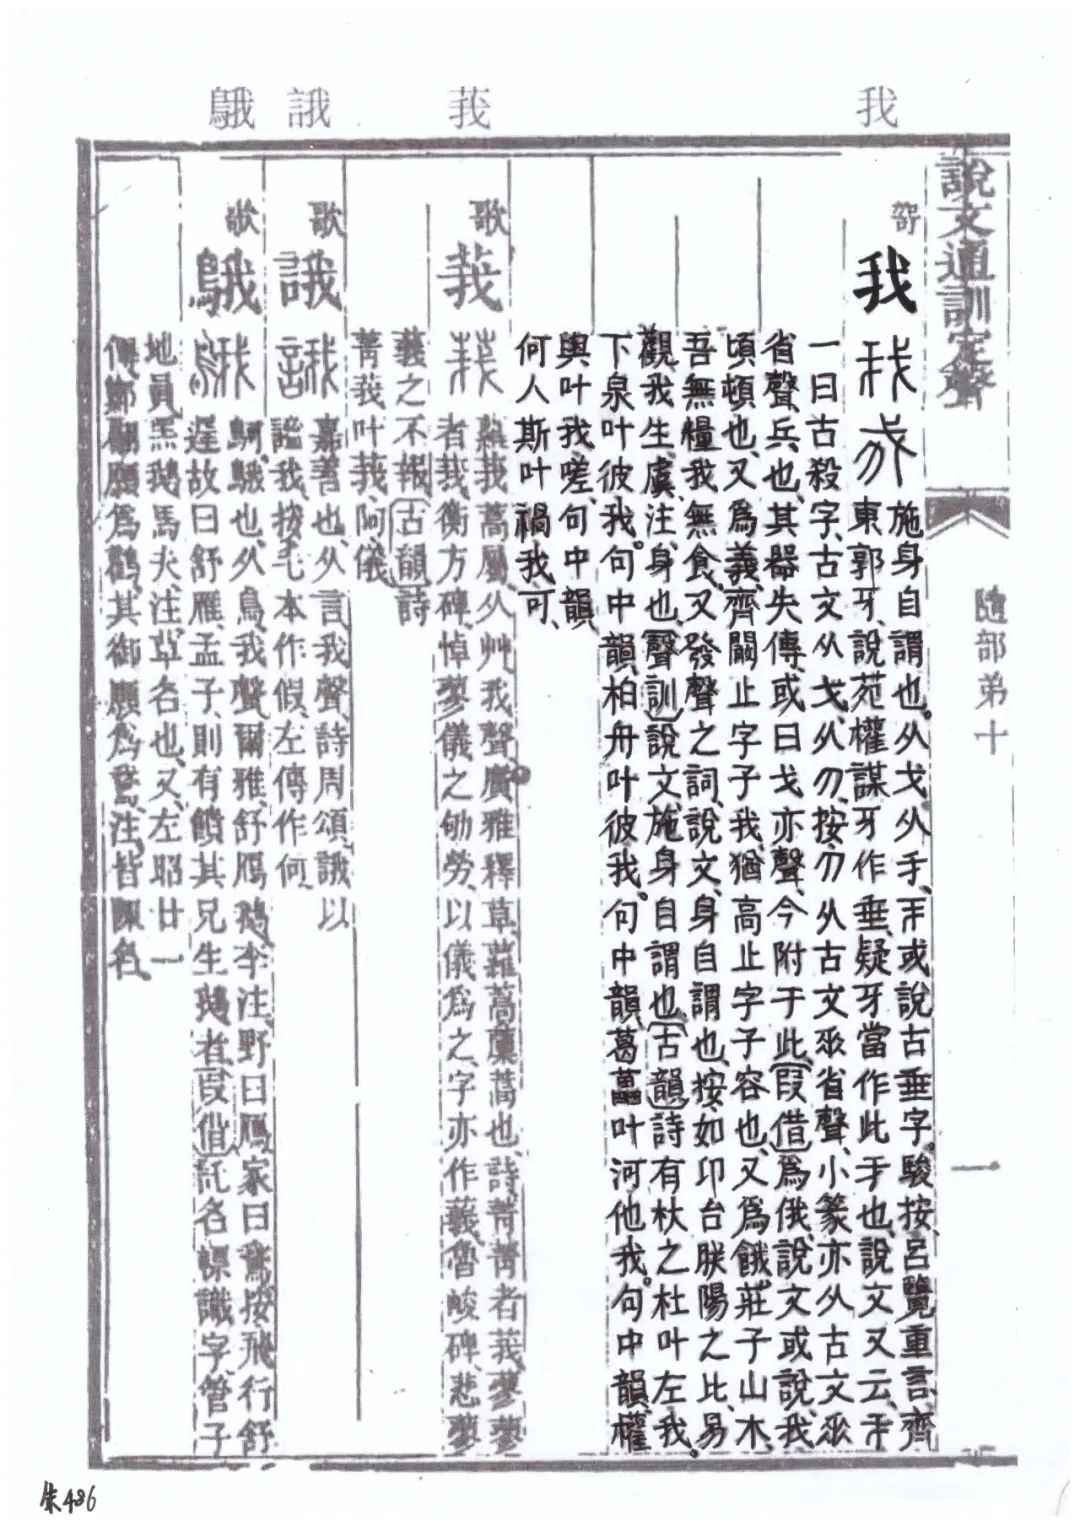 我
莪
誐
䳘
說文通訓定聲
隨部第十
一
哿
我
施身自謂也、从戈从手、手或說古垂字。駿按、呂覽重言、齊
東郭牙、說苑權謀牙作垂、疑牙當作此手也、說文又云、手
一曰古殺字、古文从戈、从勿、按、勿从古文𠂹省聲、小篆亦从古文𠂹
省聲、兵也、其器失傳、或曰戈亦聲、今附于此、叚借爲俄、說文或說我
頃頓也、又爲義、齊闞止字子我、猶高止字子容也、又爲餓。莊子山木、
吾無糧、我無食、又發聲之詞、說文、身自謂也、按、如卬台朕陽之比、易
觀我生、虞注、身也、聲訓說文、施身自謂也、古韻詩有杕之杜叶左我。
下泉叶彼我。句中韻、柏舟叶彼我。句中韻、葛藟叶河他我。句中韻、權
輿叶我嗟、句中韻
何人斯叶禍我可、
歌
莪
蘿莪蒿屬、从艸我聲、廣雅釋草、莪蒿、廩蒿也、詩、菁菁者莪、蓼蓼
者莪、衡方碑、悼蓼儀之劬勞、以儀爲之、字亦作䕏、魯峻碑、悲蓼
䕏之不報、古韻詩
菁莪叶莪、阿、儀
歌
誐
嘉善也、从言我聲、詩周頌、誐以
謐我、按、毛本作假、左傳作何、
歌
䳘
䳗䳘也、从鳥我聲、爾雅、舒鴈鵝、李注、野曰鴈、家曰鵝、按、飛行舒
遲、故曰舒雁、孟子、則有饋其兄生鵝者、叚借託名幖識字、管子
地員、黑鵝馬夫、注、草名也、又、左昭廿一
傳、鄭翩願爲鸛、其御願爲鵝、注、皆陳名、
朱486